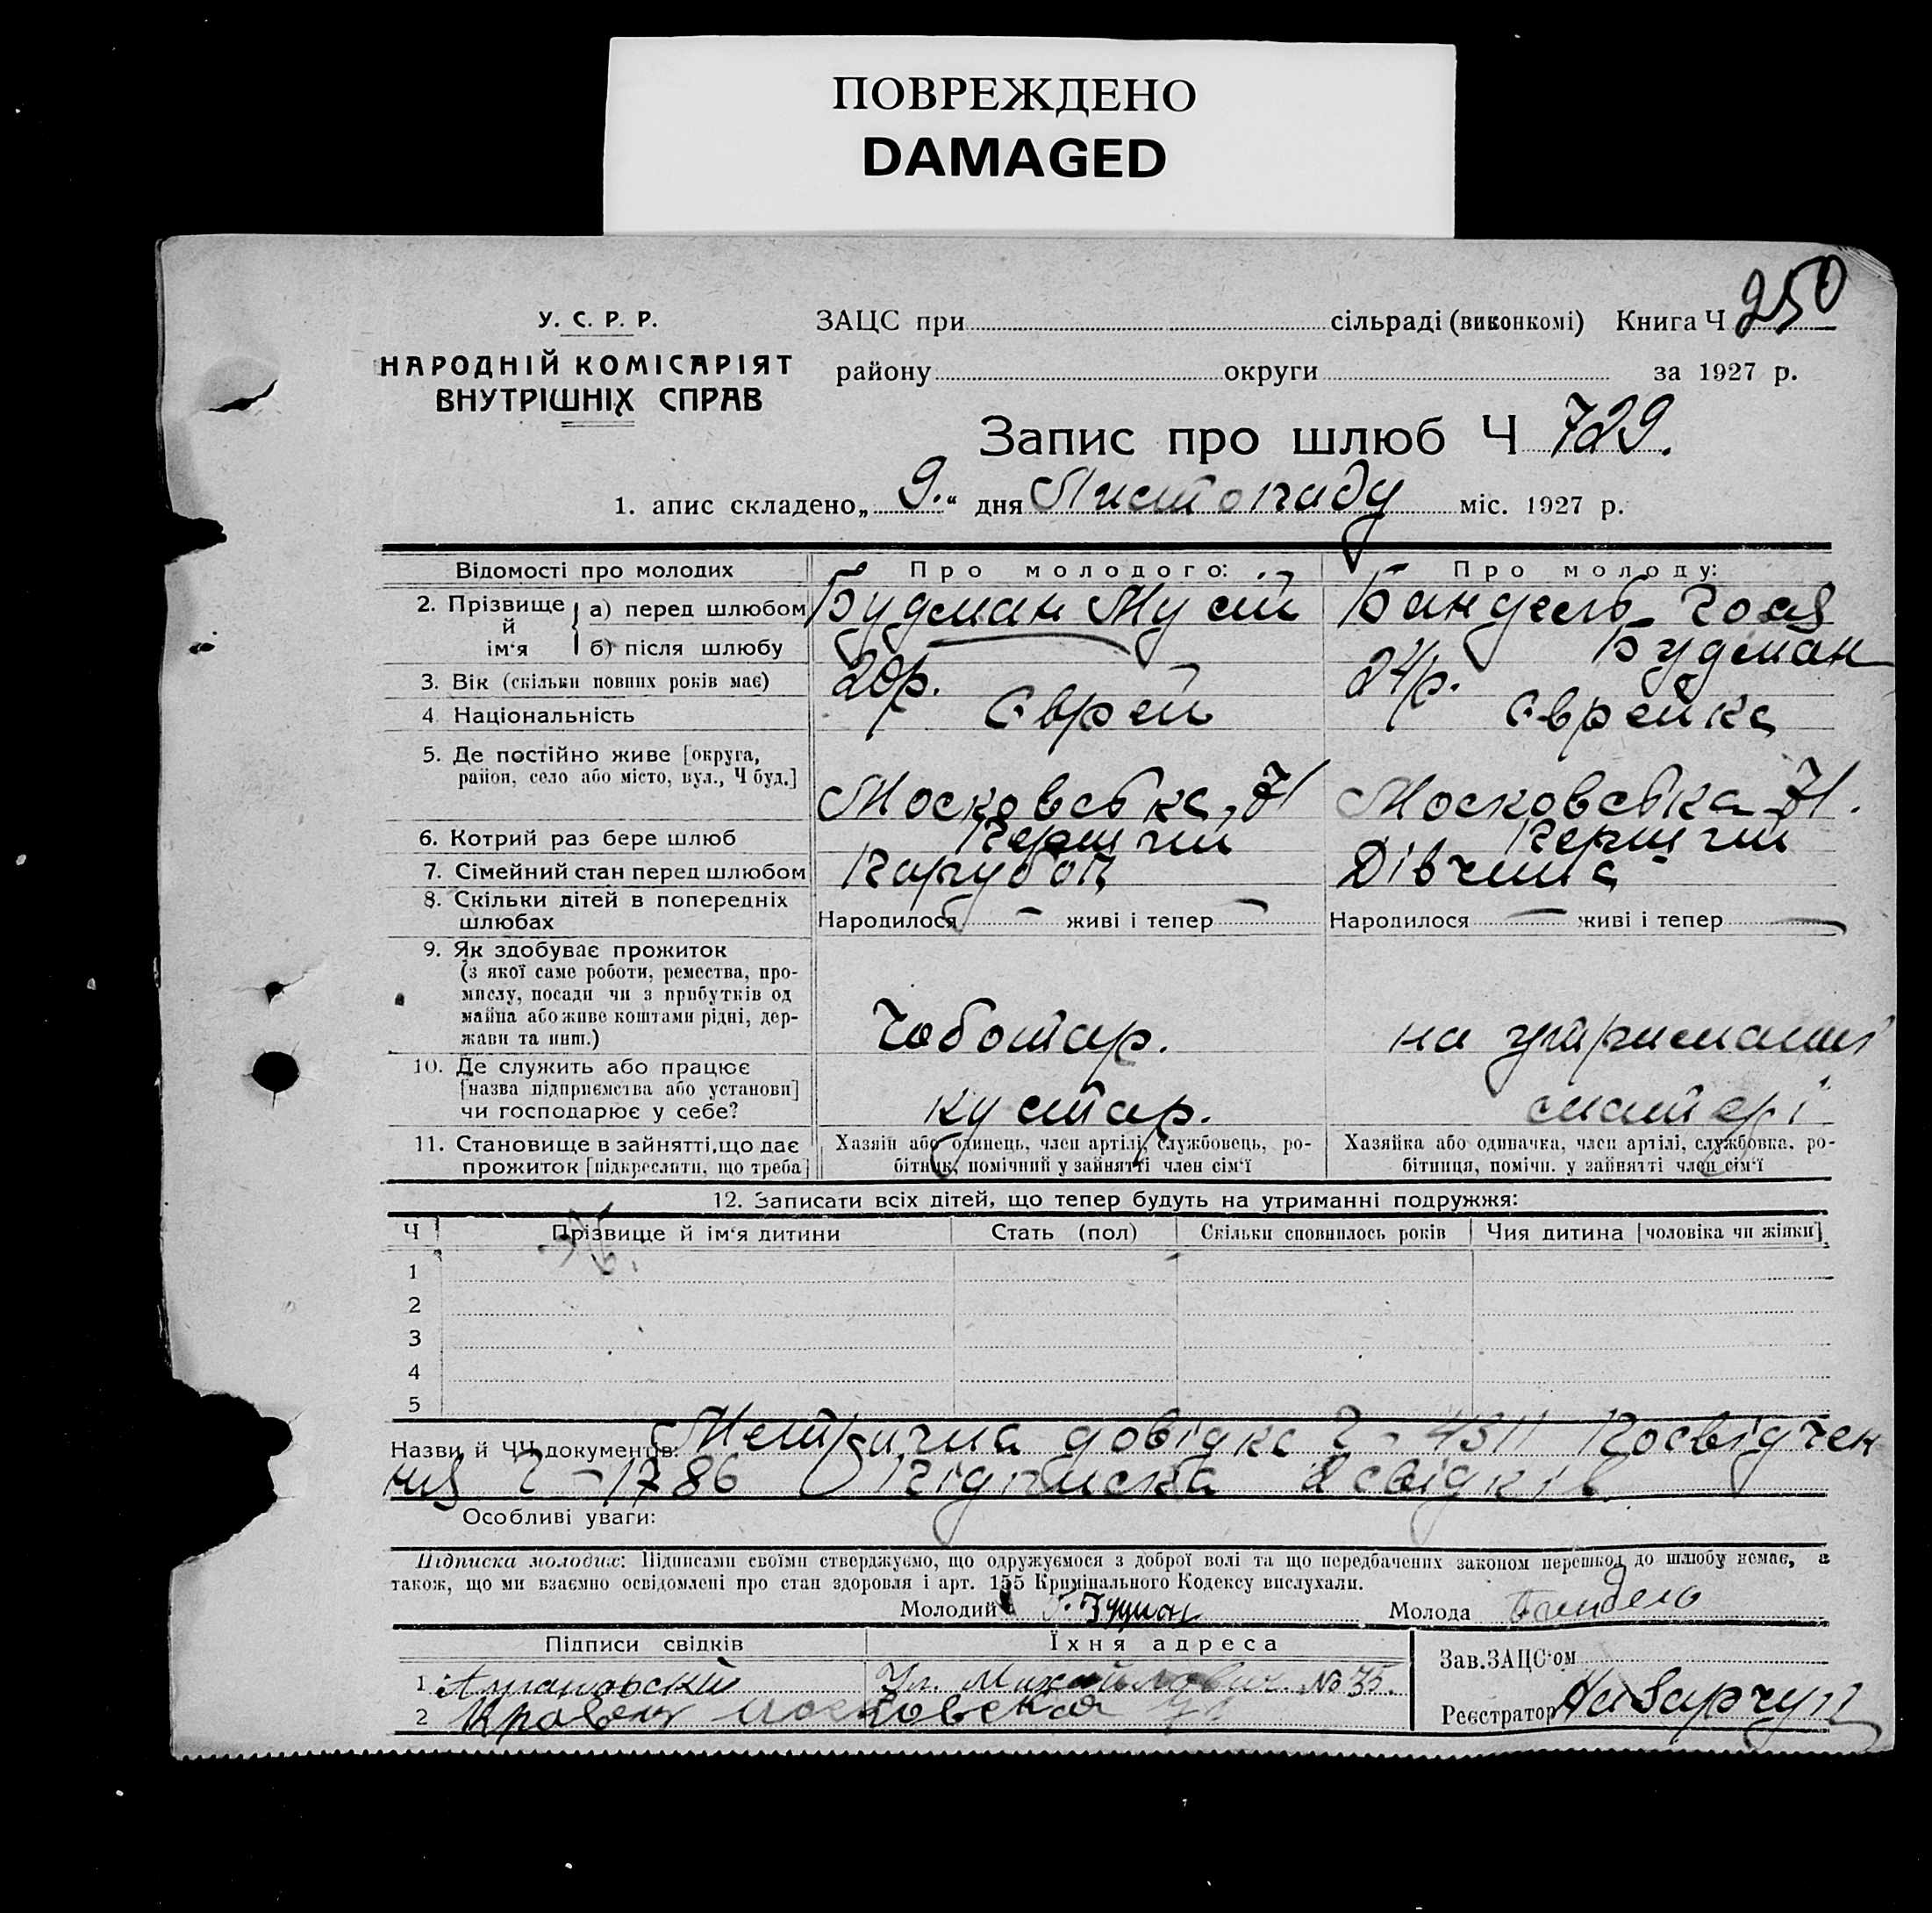 ПОВРЕЖДЕНО
DAMAGED
250
У. С. Р. Р.
НАРОДНІЙ КОМІСАРІЯТ
ВНУТРІШНІХ СПРАВ
ЗАЦС при сільраді (виконкомі) Книга Ч
району округи за 1927 р.
Запис про шлюб Ч 729.
1. апис складено „ 9. “ дня Листопаду міс. 1927 р.
Відомості про молодих Про молодого: Про молоду:
2. Прізвище й ім‘я а) перед шлюбом Будман Мусій Бандель
б) після шлюбу Будман
3. Вік (скільки повних років має) 20р. 24р.
4. Національність Єврей Єврейка
5. Де постійно живе [округа,
район, село або місто, вул., Ч буд.] Московська, 71 Московська 71.
6. Котрий раз бере шлюб Перший Перший
7. Сімейний стан перед шлюбом Парубок Дівчина
8. Скільки дітей в попередніх
шлюбах Народилося — живі і тепер — Народилося — живі і тепер —
9. Як здобуває прожиток
(з якої саме роботи, ремества, про-
мислу, посади чи з прибутків од
майна або живе коштами рідні, дер-
жави та инш.) Чоботар. на утриманні
10. Де служить або працює
[назва підприємства або установи]
чи господарює у себе? кустар. матері
11. Становище в зайнятті, що дає
прожиток [підкреслити, що треба]
Хазяїн або одинець, член артілі, службовець, ро-
бітник, помічний у зайнятті член сім‘ї
Хазяйка або одиначка, член артілі, службовка, ро-
бітниця, помічн. у зайнятті член сім‘ї
12. Записати всіх дітей, що тепер будуть на утриманні подружжя:
Ч Прізвище й ім‘я дитини Стать (пол) Скільки сповнилось років Чия дитина [чоловіка чи жінки]
1
2
3
4
5
Назви й ЧЧ документів: Метрична довідка Ч – 4311 Посвідчен
ня Ч – 1786 Підписка 2 свідків
Особливі уваги:
Підписка молодих: Підписами своїми стверджуємо, що одружуємося з доброї волі та що передбачених законом перешкод до шлюбу немає, а
також, що ми взаємно освідомлені про стан здоровля і арт. 155 Кримінального Кодексу вислухали.
Молодий Молода Бандель
Підписи свідків Їхня адреса
1 Ул. №35.
2 Кравец Московская 71
Зав. ЗАЦС‘ом
Реєстратор